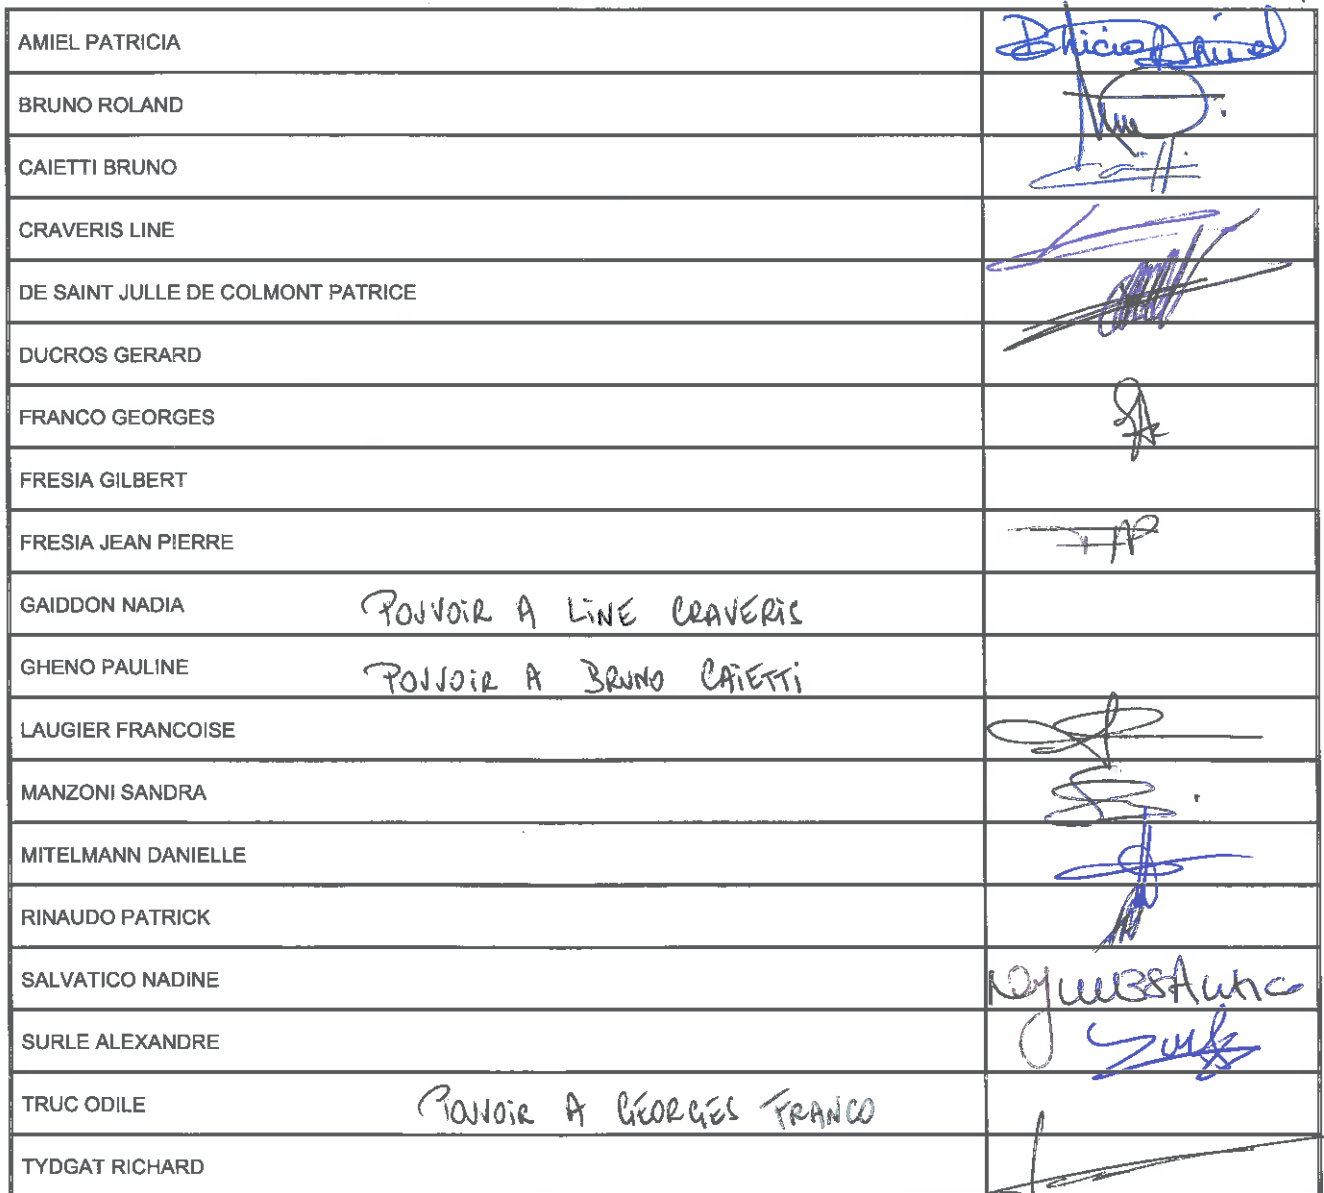 AMIEL PATRICIA
BRUNO ROLAND
CAIETTI BRUNO
CRAVERIS LINE
DE SAINT JULLE DE COLMONT PATRICE
DUCROS GERARD
FRANCO GEORGES
FRESIA GILBERT
FRESIA JEAN PIERRE
GAIDDON NADIA POUVOIR A LINE CRAVERIS
GHENO PAULINE POUVOIR A BRUNO CAIETTI
LAUGIER FRANCOISE
MANZONI SANDRA
MITELMANN DANIELLE
RINAUDO PATRICK
SALVATICO NADINE
SURLE ALEXANDRE
TRUC ODILE POUVOIR A GEORGES FRANCO
TYDGAT RICHARD